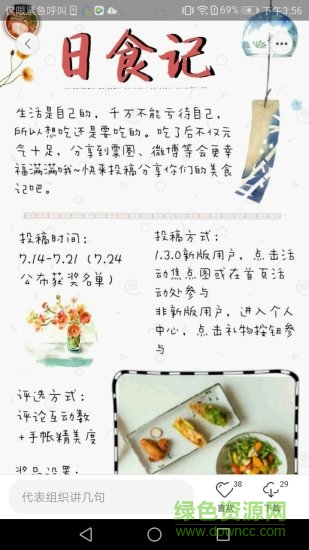 仅限紧急呼叫
69%
下午3:56
日食记
生活是自己的，千万不能亏待自己，
所以想吃还是要吃的。吃了后不仅元
气十足，分享到栗图、微博等会更幸
福满满哦~快来投稿分享你们的美食
记吧。
投稿时间：
7.14-7.21（7.24
公布获奖名单）
投稿方式：
1.3.0新版用户，点击活
动焦点图或在首页活
动处参与
非新版用户，进入个人
中心，点击礼物按钮参
与
评选方式：
评论互动数
+手帐精美度
奖品设置：
代表组织讲几句
38
喜欢
29
下载
绿色资源网
www.downcc.com